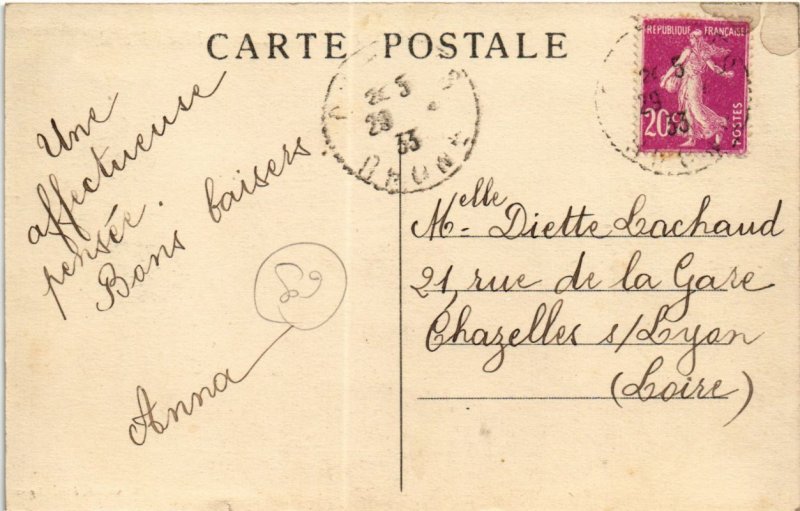 CARTE POSTALE
RÉPUBLIQUE FRANÇAISE
20c
POSTES
29
33
RHONE
Une
affectueuse
pensée.
Bons baisers
Anna
Melle Diette Lachaud
21, rue de la Gare
Chazelles s/Lyon
(Loire)